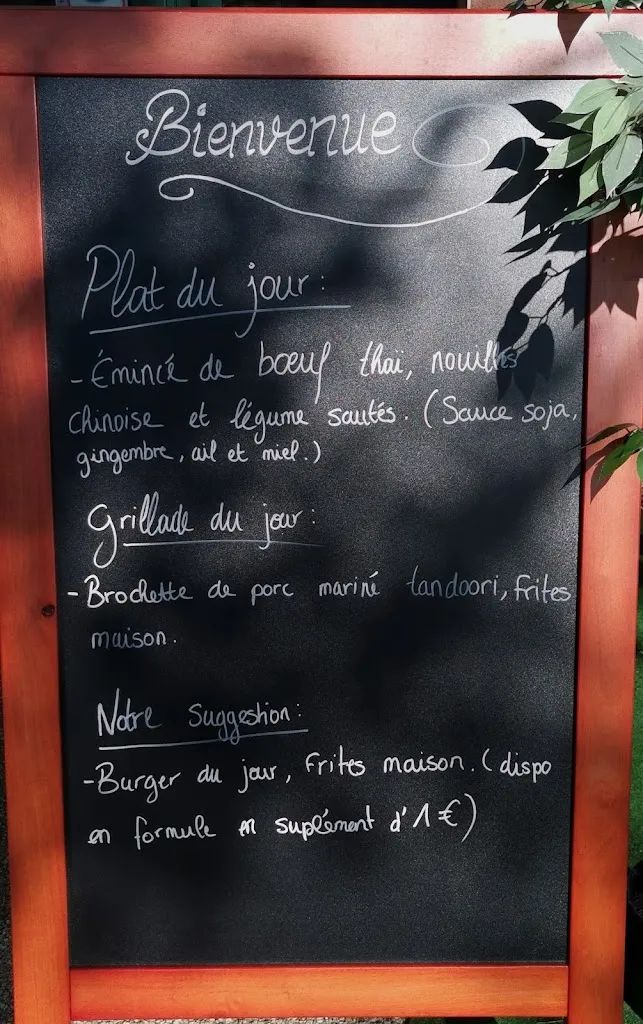 Bienvenue
Plat du jour :
- Émincé de bœuf thaï, nouilles
chinoise et légume sautés. (Sauce soja,
gingembre, ail et miel.)
Grillade du jour :
- Brochette de porc mariné tandoori, frites
maison.
Notre suggestion :
- Burger du jour, frites maison. (dispo
en formule en suplément d'1€)